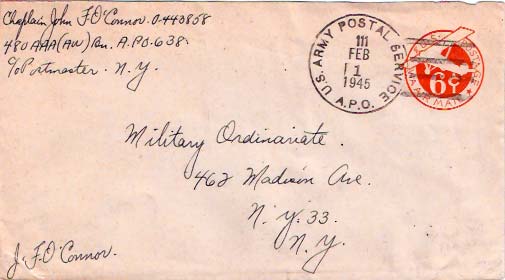 Chaplain John F. O'Connor. O-443858
480 AAA (AW) Bn. A.P.O. 638.
c/o Postmaster. N.Y.
U.S. ARMY POSTAL SERVICE
A.P.O.
111
FEB
1
1945
U.S. POSTAGE
6¢
VIA AIR MAIL
Military Ordinariate.
462 Madison Ave.
N.Y. 33.
N.Y.
J. F. O'Connor.